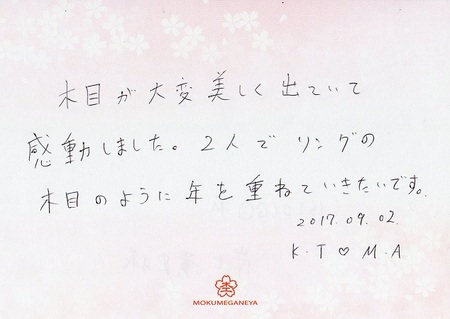 木目が大変美しく出ていて
感動しました。2人でリングの
木目のように年を重ねていきたいです。
2017.09.02.
K.T♡M.A
MOKUMEGANEYA